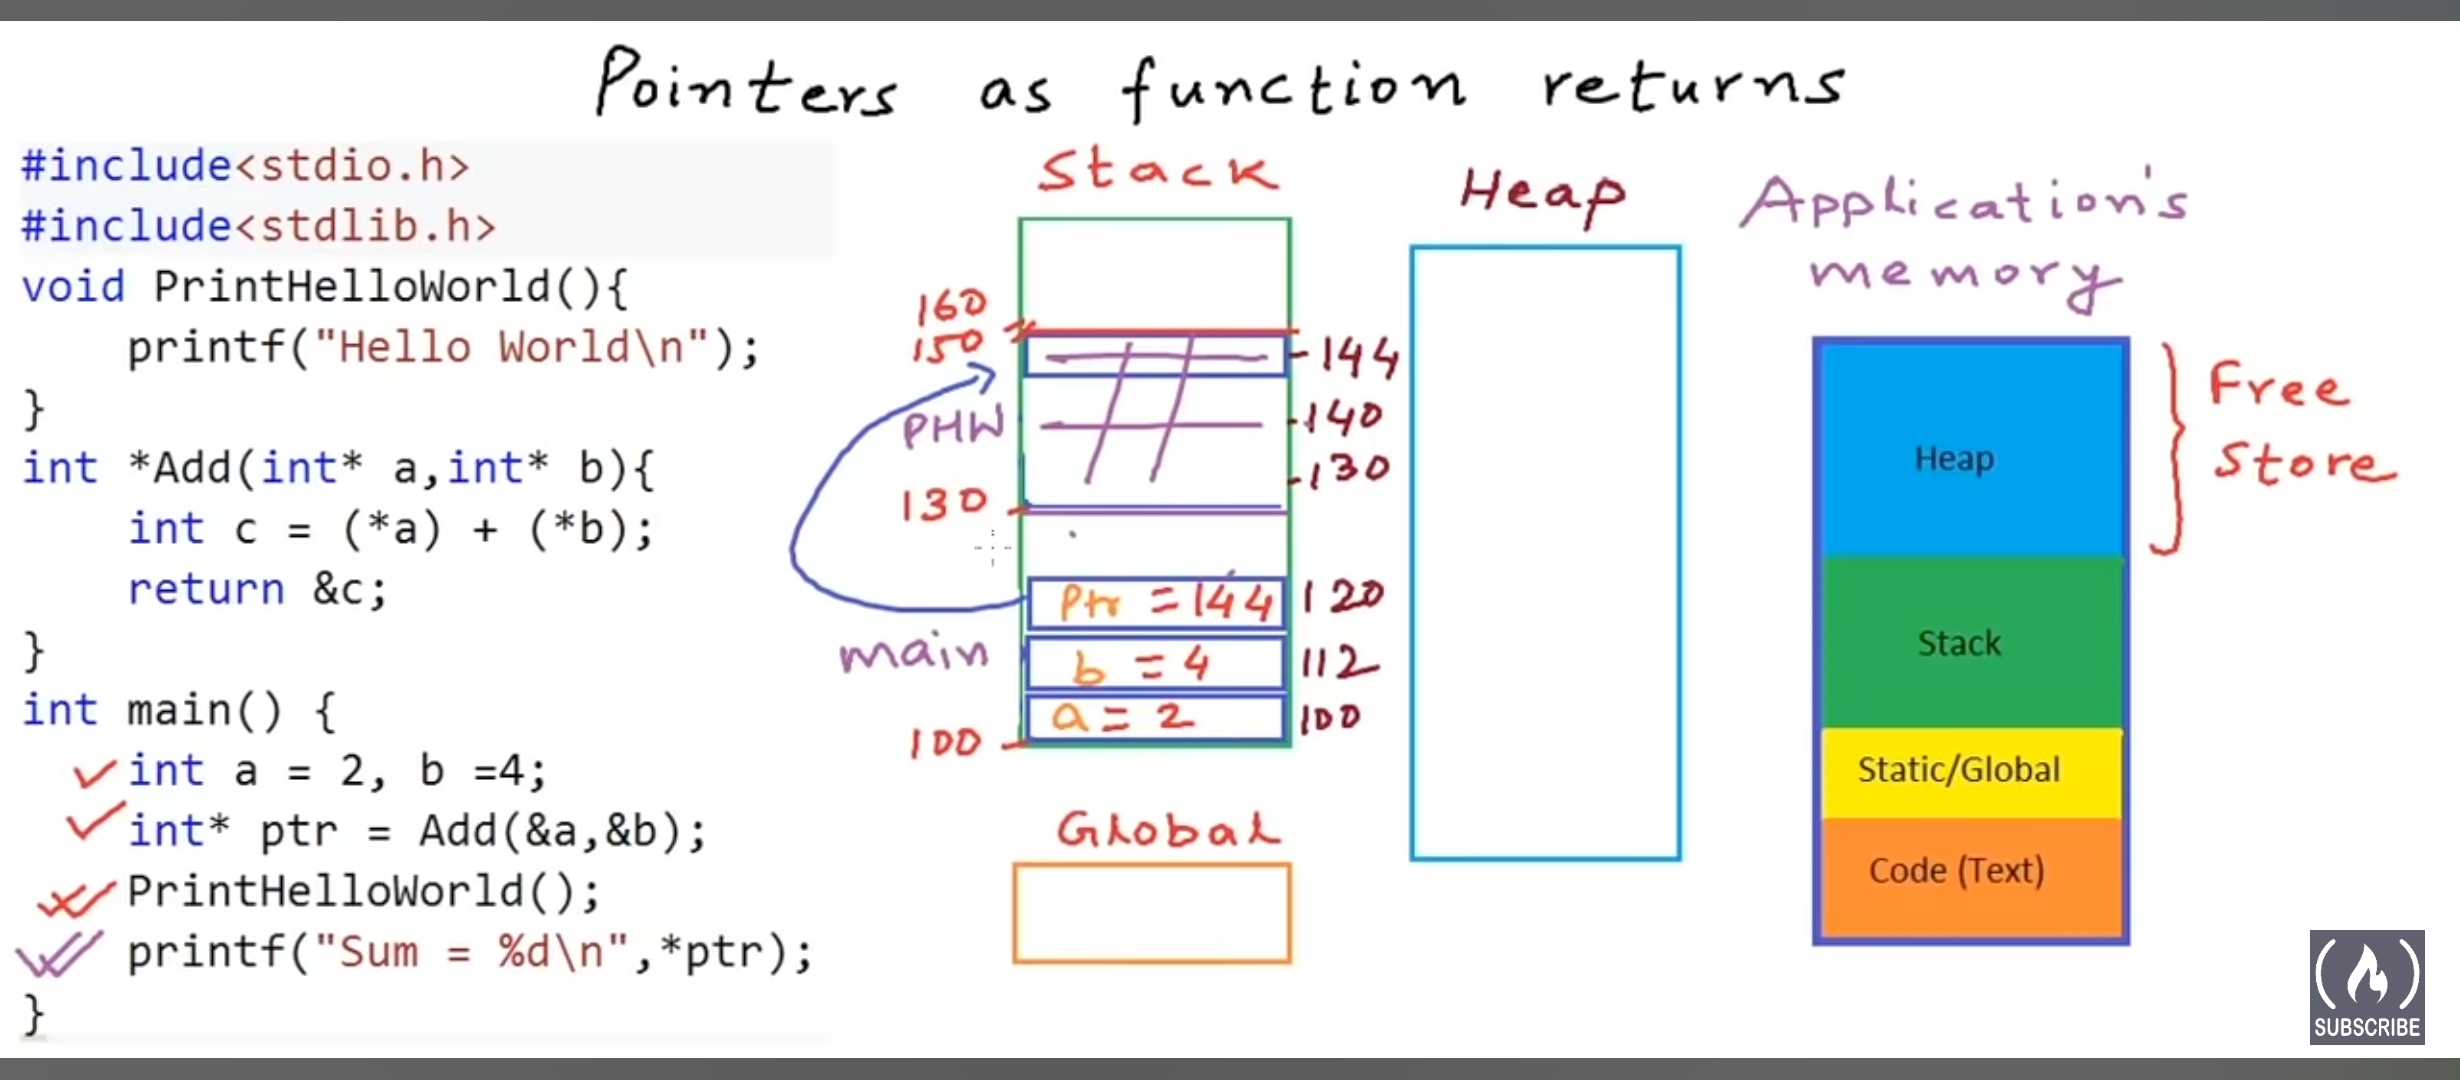 Pointers as function returns
#include<stdio.h>
#include<stdlib.h>
void PrintHelloWorld(){
    printf("Hello World\n");
}
int *Add(int* a,int* b){
    int c = (*a) + (*b);
    return &c;
}
int main() {
    int a = 2, b =4;
    int* ptr = Add(&a,&b);
    PrintHelloWorld();
    printf("Sum = %d\n",*ptr);
}
Stack
160
150
144
PHW
140
130
130
ptr = 144
120
main
b = 4
112
a = 2
100
100
Global
Heap
Application's
memory
Heap
Stack
Static/Global
Code (Text)
Free
Store
SUBSCRIBE